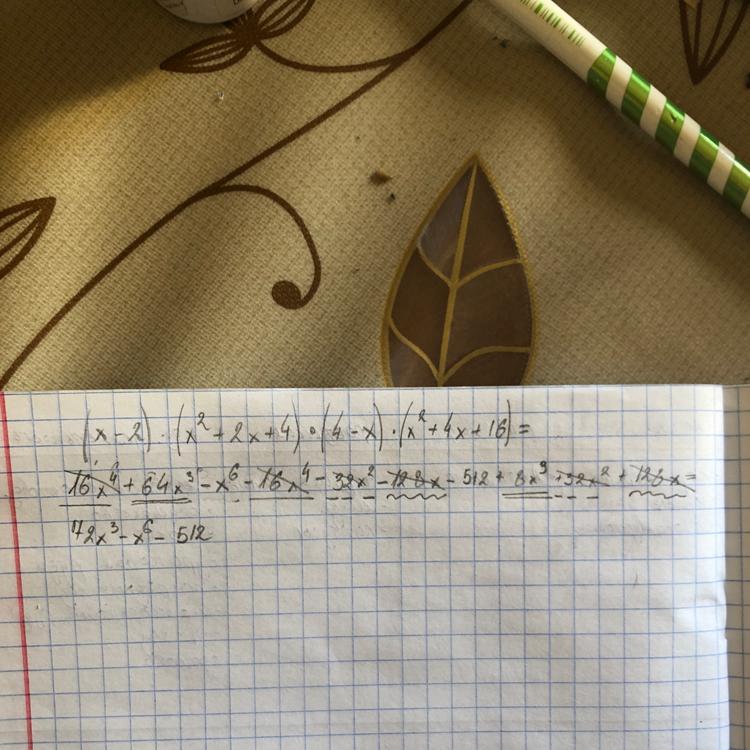 (x-2)·(x²+2x+4)·(4-x)·(x²+4x+16)=
16x⁴+64x³-x⁶-16x⁴-32x²-128x-512+8x³+32x²+128x=
72x³-x⁶-512